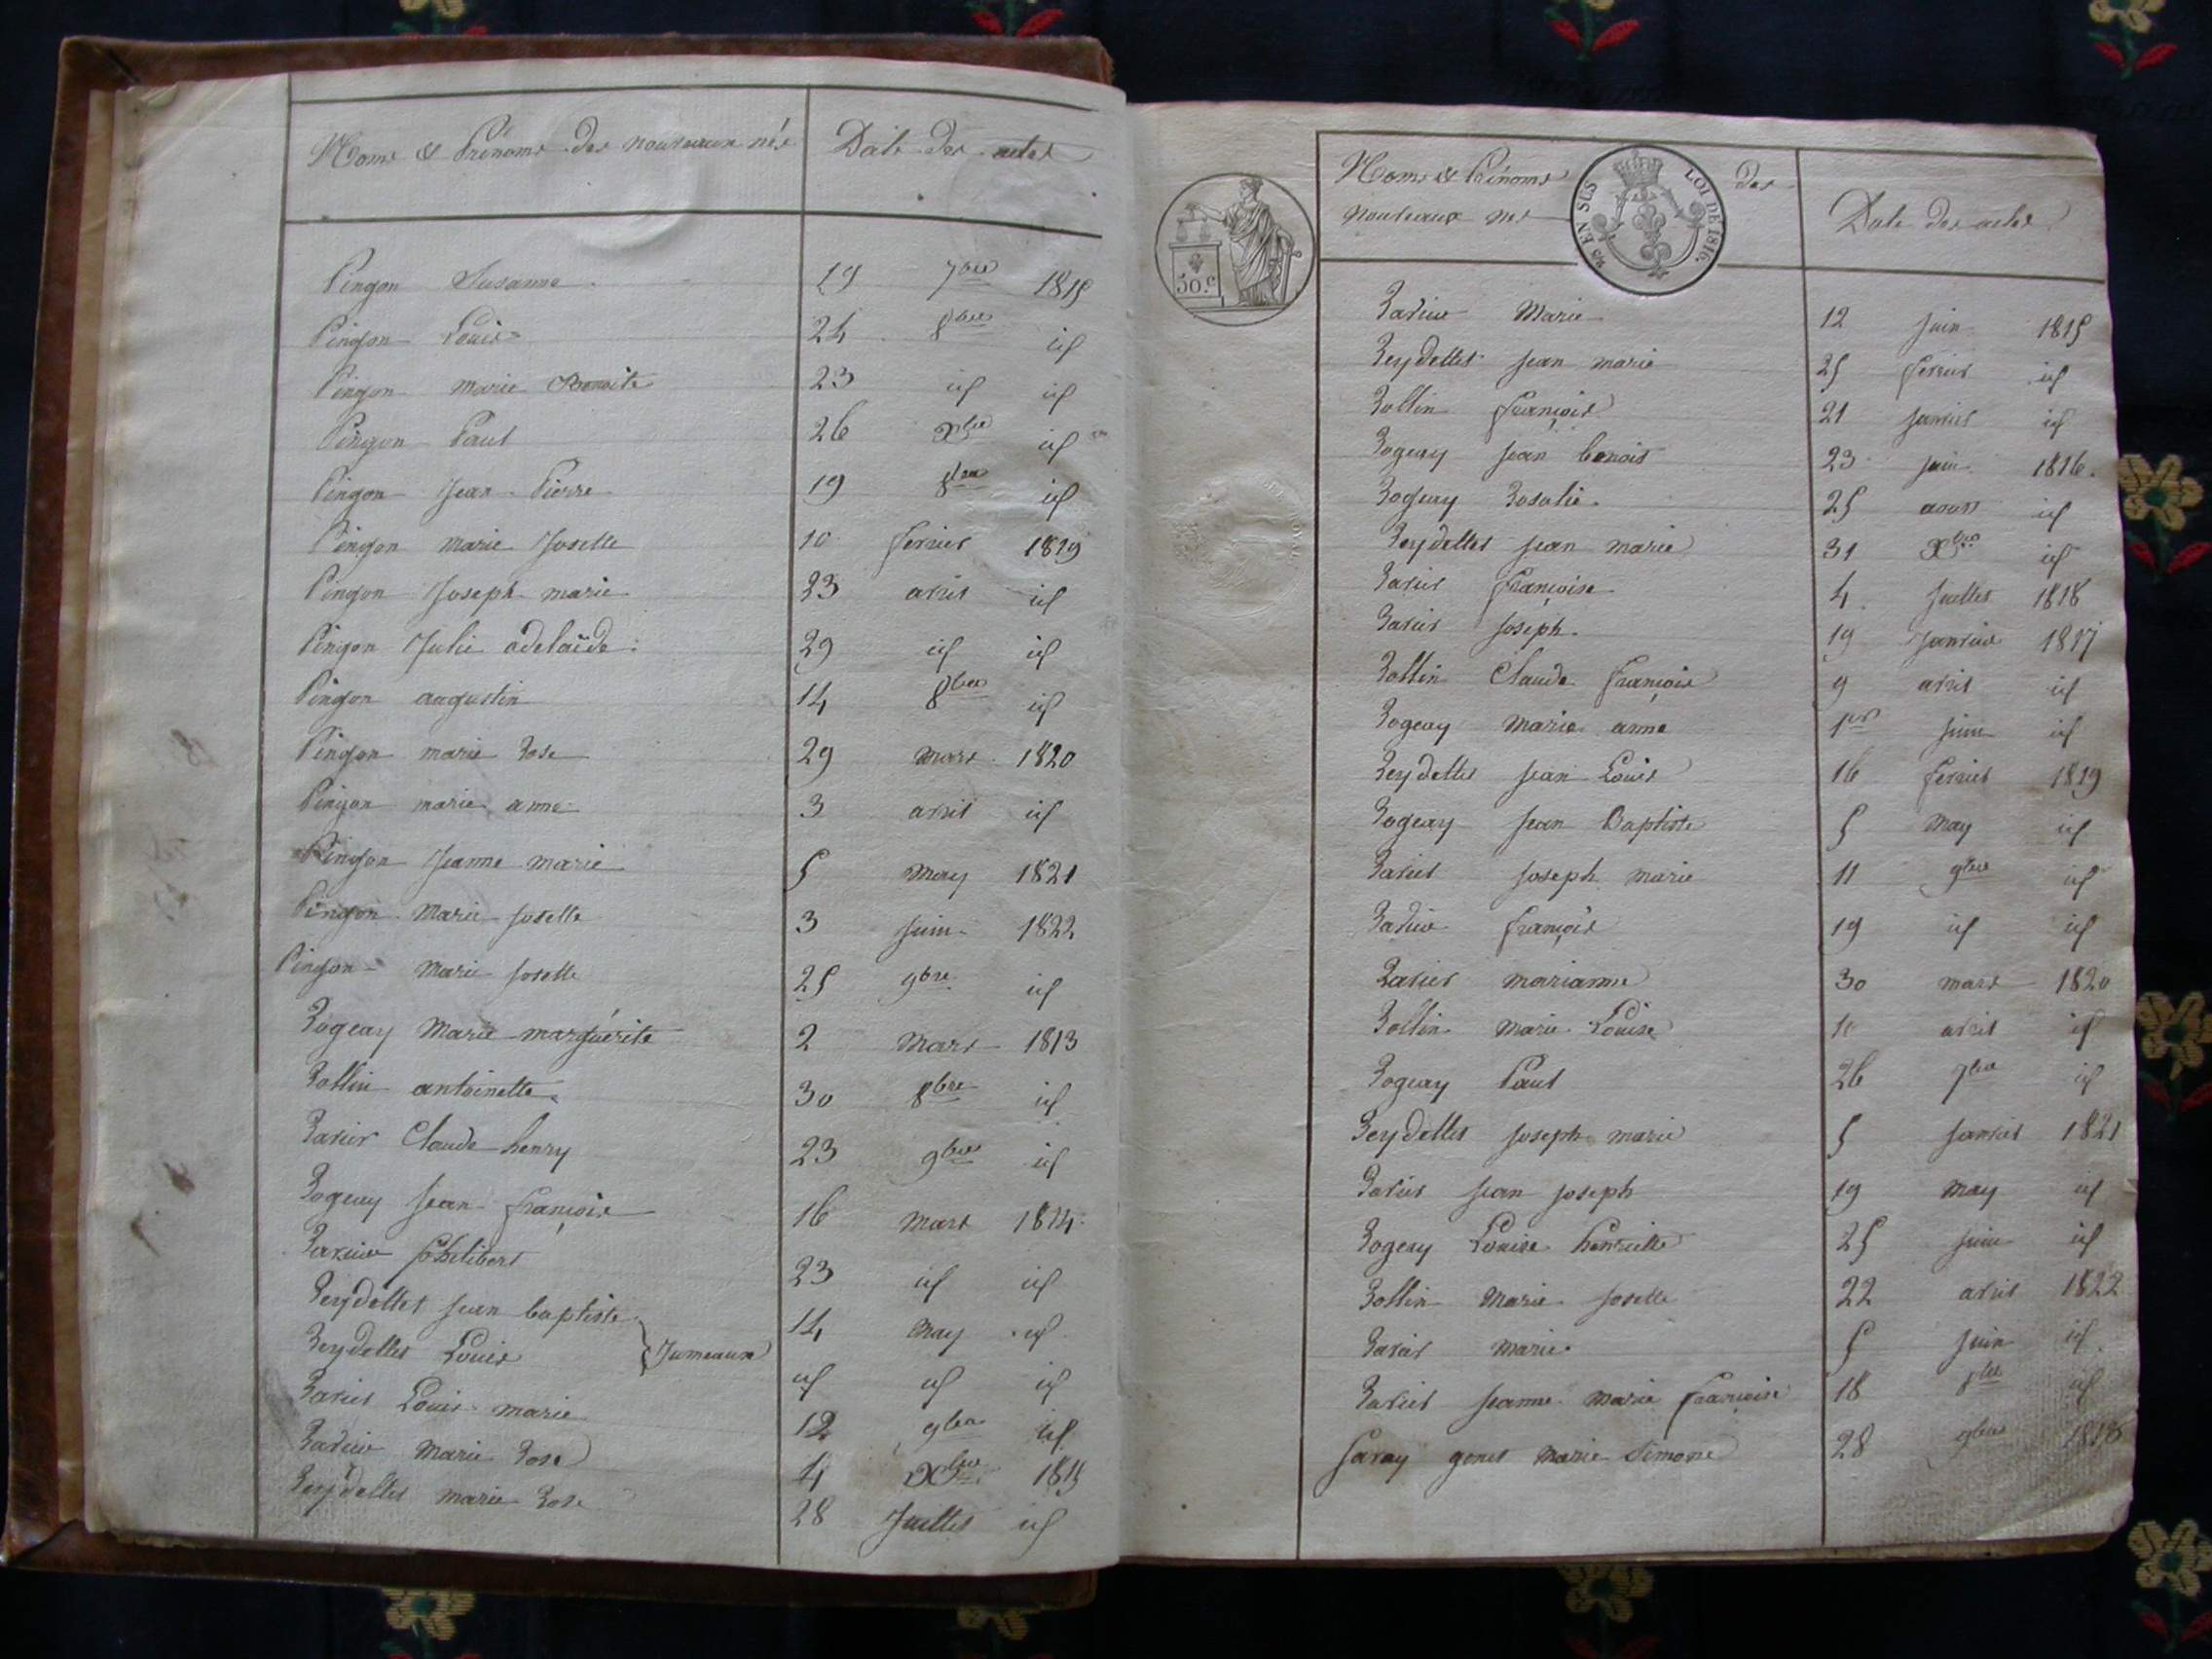 Noms & Prénoms des nouveaux nés Date des actes
Pingon Susanne 19 7bre 1815
Pingon Louis 24 8bre id
Pingon marie Benoite 23 id id
Pingon Paul 26 Xbre id
Pingon Jean Pierre 19 8bre id
Pingon marie Josette 10 fevrier 1819
Pingon Joseph marie 23 avril id
Pingon Julie adelaïde 29 id id
Pingon augustin 14 8bre id
Pingon marie Rose 29 mars 1820
Pingon marie anne 3 avril id
Pingon Jeanne marie 5 May 1821
Pingon Marie Josette 3 juin 1822
Pingon Marie Josette 25 9bre id
Rogeay Marie marguérite 2 Mars 1813
Rollin antoinette 30 8bre id
Ravier Claude henry 23 9bre id
Rogeay Jean françois 16 Mars 1814
Ravier Philibert 23 id id
Reydellet Jean baptiste 14 May id
Reydellet Louis Jumeaux id id id
Ravier Louis marie 12 9bre id
Ravier Marie Rose 4 Xbre 1815
Reydellet marie Rose 28 Juillet id
50.c
EN SUS LOI DE 1816.
Noms & Prénoms des
nouveaux nés Date des actes
Ravier Marie 12 juin 1815
Reydellet Jean marie 25 fevrier id
Rollin françois 21 janvier id
Rogeay Jean benoit 23 juin 1816.
Rogeay Rosalie 25 aoust id
Reydellet Jean marie 31 Xbre id
Ravier françoise 4 Juillet 1818
Ravier Joseph 19 Janvier 1817
Rollin Claude françois 9 avril id
Rogeay Marie anne 1er juin id
Reydellet Jean Louis 16 fevrier 1819
Rogeay Jean Baptiste 5 May id
Ravier Joseph marie 11 9bre id
Ravier françois 19 id id
Ravier marianne 30 mars 1820
Rollin Marie Louise 10 avril id
Rogeay Paul 26 7bre id
Reydellet Joseph marie 5 janvier 1821
Ravier Jean Joseph 19 may id
Rogeay Louise henriette 25 juin id
Rollin Marie Josette 22 avril 1822
Ravier marie 5 juin id
Ravier Jeanne Marie françoise 18 8bre id
Savay gonet Marie Simone 28 9bre 1818